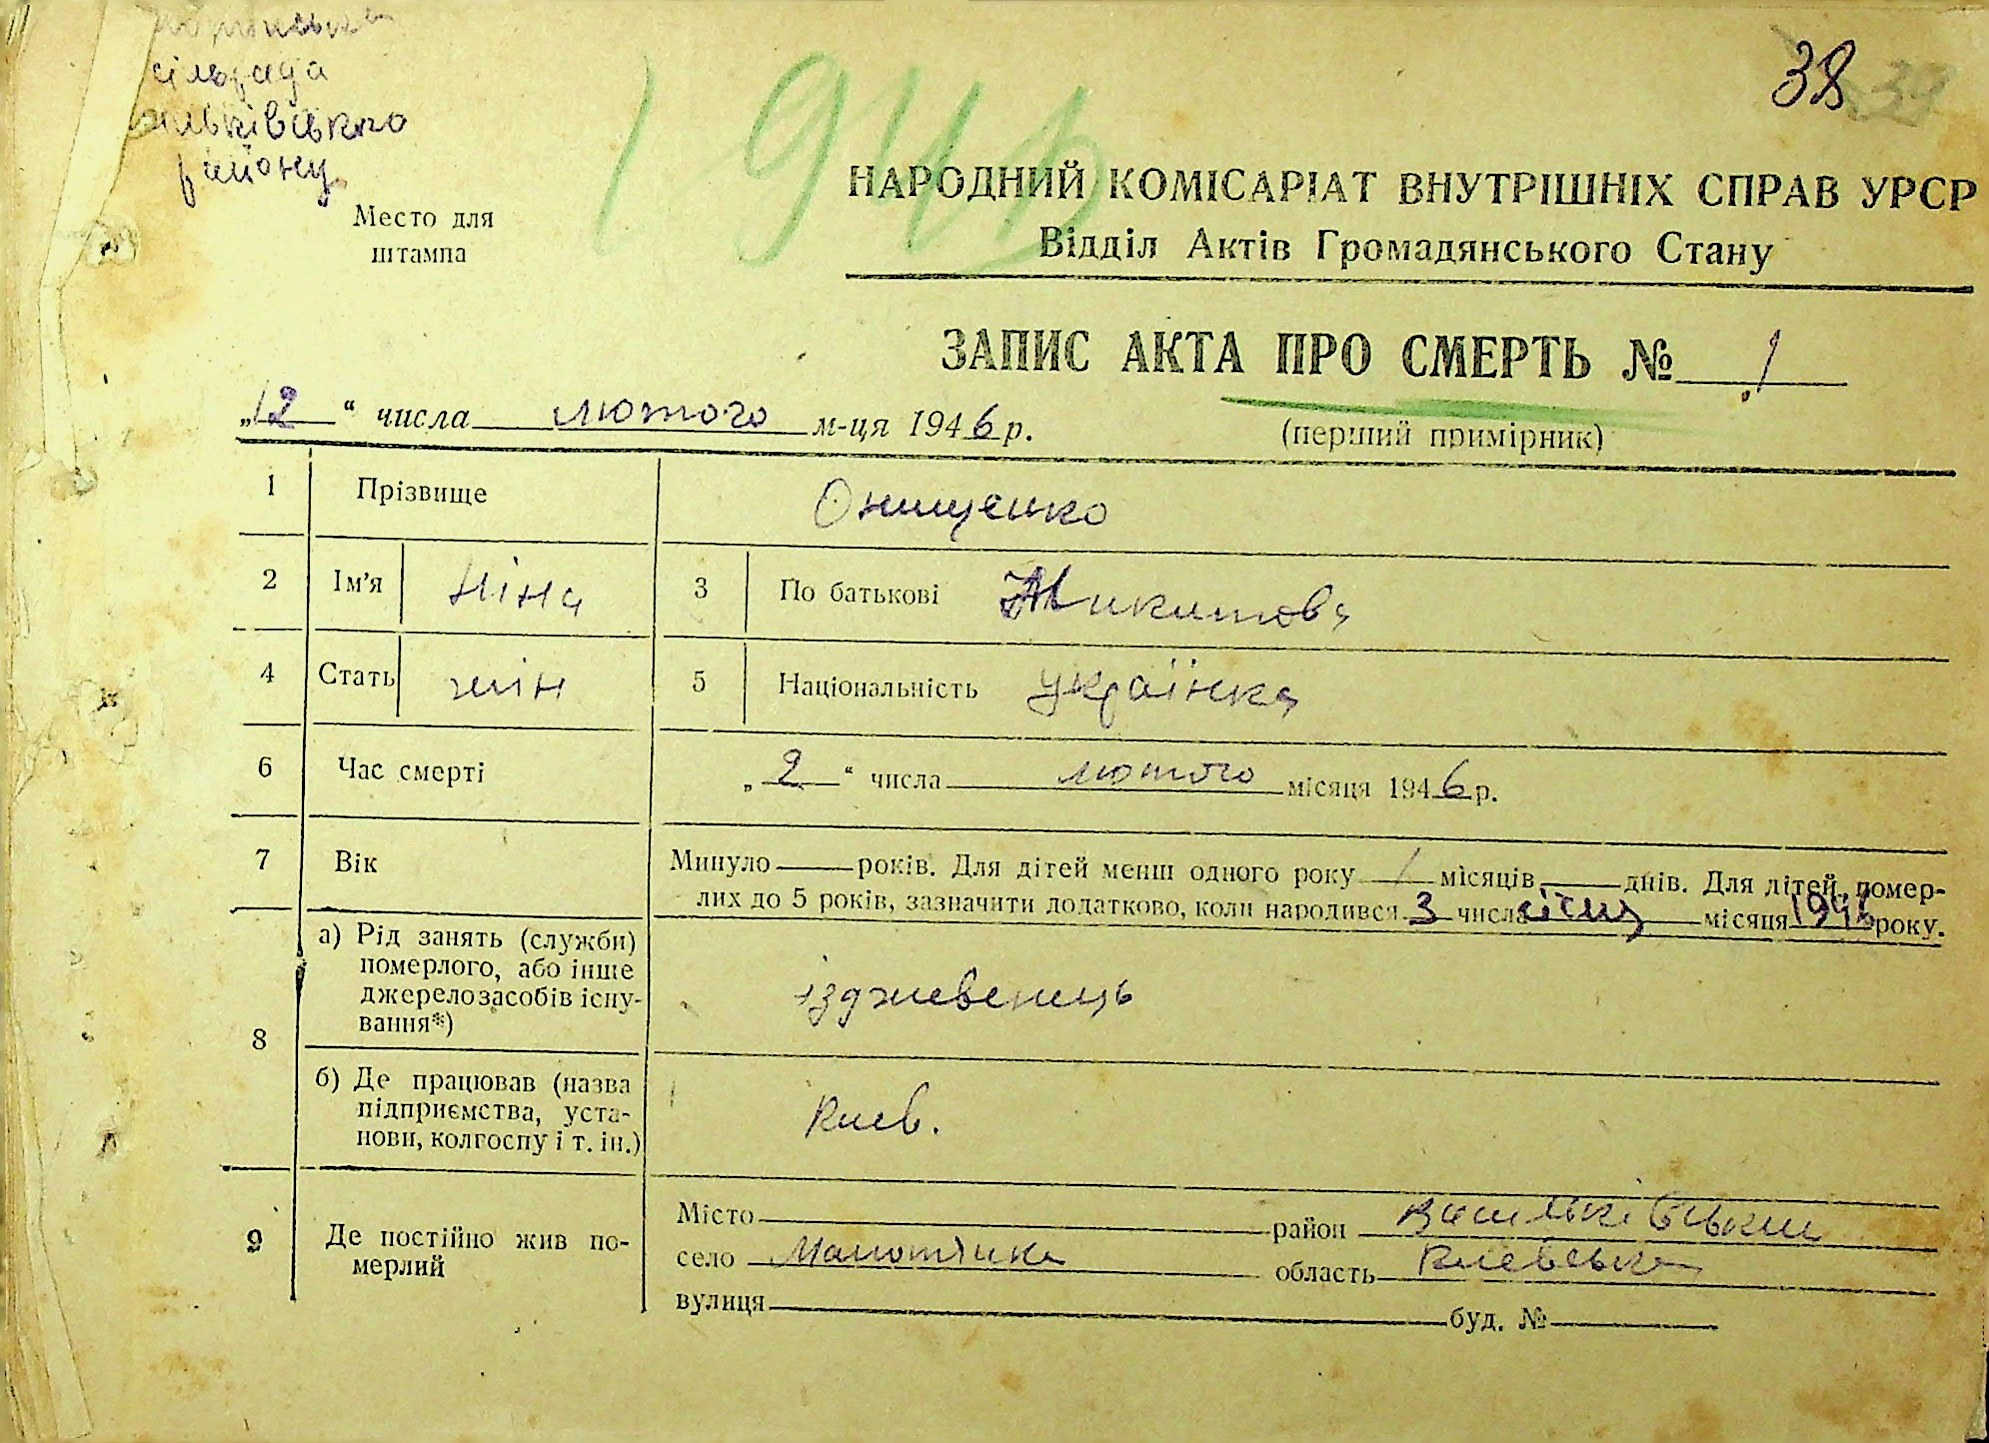 сільрада
району
1946
38 39
Место для
штампа
НАРОДНИЙ КОМІСАРІАТ ВНУТРІШНІХ СПРАВ УРСР
Відділ Актів Громадянського Стану
ЗАПИС АКТА ПРО СМЕРТЬ № 1
„12“ числа лютого м-ця 1946 р.
(перший примірник)
1 Прізвище Онищенко
2 Ім'я Ніна 3 По батькові Микитовa
4 Стать жін 5 Національність українка
6 Час смерті „2“ числа лютого місяця 1946 р.
7 Вік Минуло років. Для дітей менш одного року 1 місяців днів. Для дітей, помер-
лих до 5 років, зазначити додатково, коли народився 3 числа січня місяця 1946 року.
8 а) Рід занять (служби)
померлого, або інше
джерело засобів існу-
вання*)
іздževенець
б) Де працював (назва
підприємства, уста-
нови, колгоспу і т. ін.)
Киев.
9 Де постійно жив по-
мерлий
Місто район Васильківський
село область Киевська
вулиця буд. №